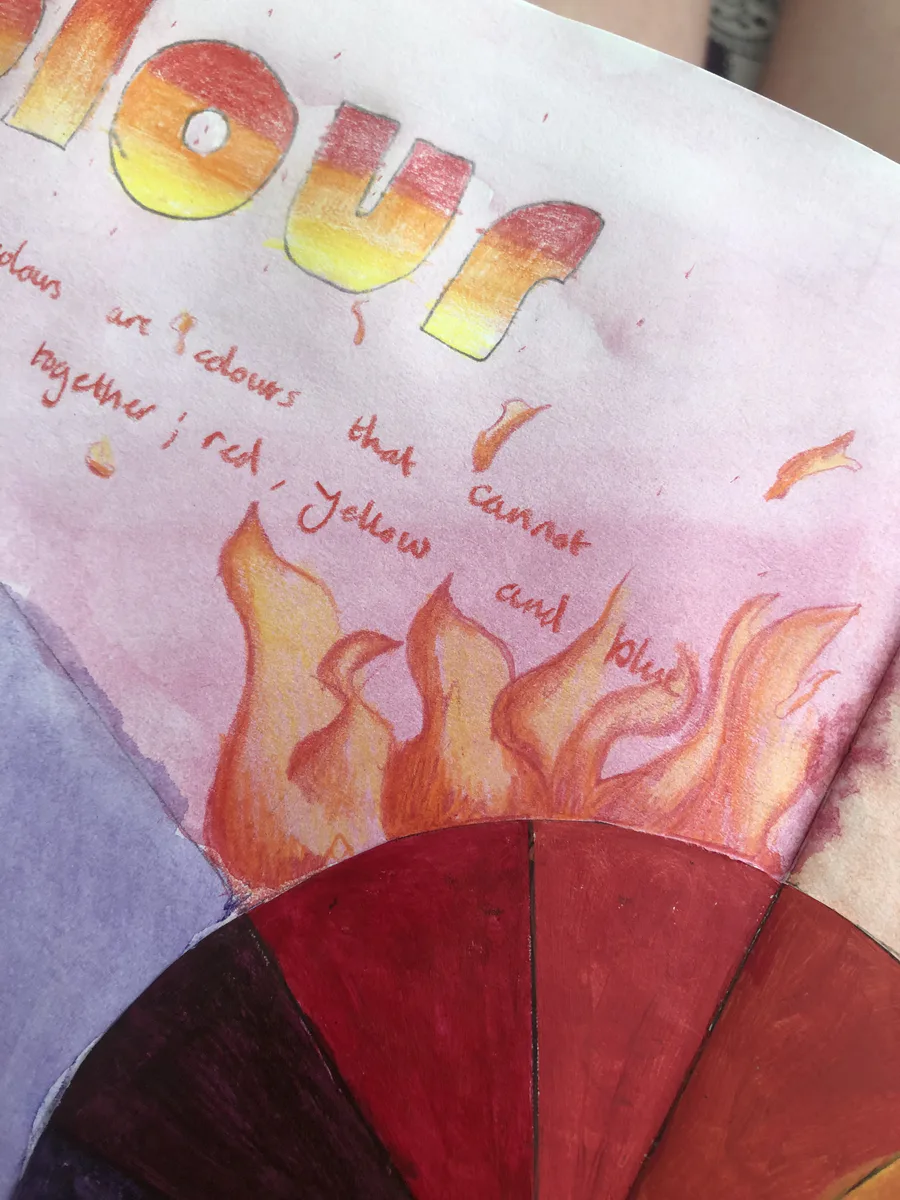 lour
olours are colours that cannot
together; red, yellow and blue